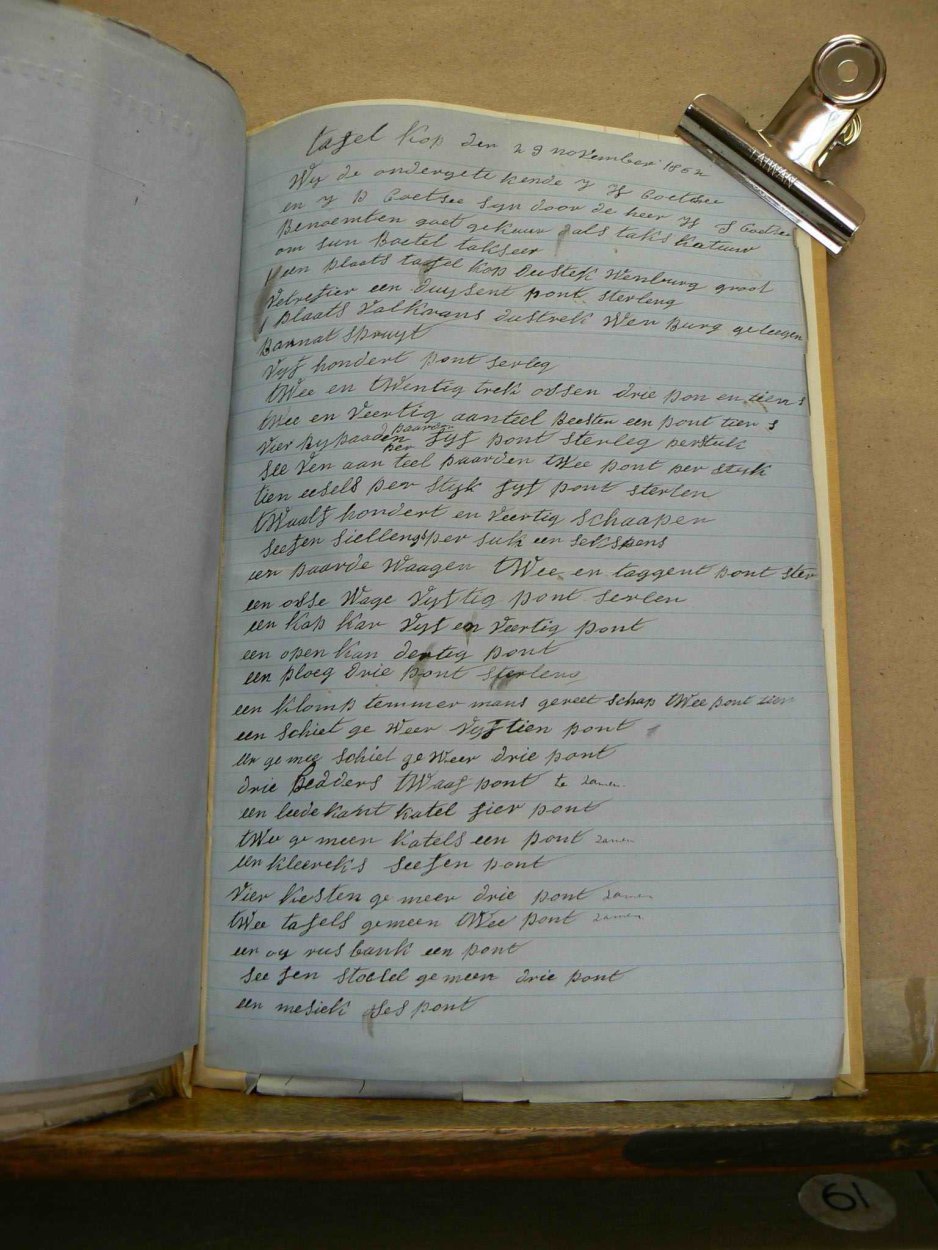 tafel Kop den 29 november 1862
Wy de ondergete kende y H Coetsee
en y D Coetsee syn door de heer ys S Coetsee
Benoemten goet gekeur als taks Katuur
om sun Boetel takseer
een plaats tafel Kop Wenburg groot
een duysent pont sterleng
plaats Valkrans dustrek Wen Burg geleegen
Bannat Spruyt
Vyf hondert pont serleg
tWee en tWentig trek ossen drie pon en tien s
tWee en Veertig aanteel Beesten een pont tien s
Vier Rypaaden paarden per fyf pont sterleg perstuk
See Ven aan teel paarden tWee pont per stuk
tien eesels per styk fyf pont sterlen
tWaalf hondert en Veertig Schaapen
seefen siellengs per suk een seks pens
een paarde Waagen tWee en taggent pont ster
een osse Wage Vyftig pont serlen
een Kap Kar Vyf en Veertig pont
een open Kan dertig pont
een ploeg drie pont sterlens
een klomp temmer mans gereet schap tWee pont tien
een Schiet ge Weer Vyftien pont
een ge mee Schiet ge Weer drie pont
drie Bedders tWaaf pont te zamen
een leede kant katel fier pont
tWee ge meen Katels een pont zamen
een kleereks seefen pont
Vier kiesten ge meer drie pont zamen
tWee tafels gemeen tWee pont zamen
een oy rus bank een pont
see fen stoelel ge meen drie pont
een mesiek ses pont
TAIWAN
61